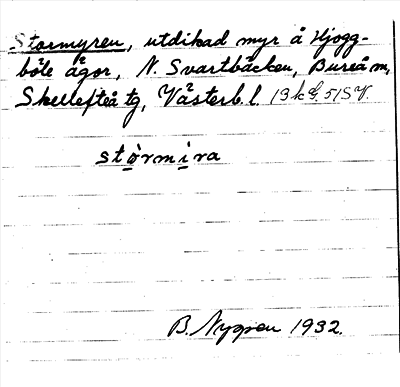 Stormyren, utdikad myr å Hjogg-
böle ägor, N. Svartbäcken, Bureå m,
Skellefteå tg, Västerb. l. 13 k G. 51SV.
stòrmi̱ra
B. Nygren 1932.